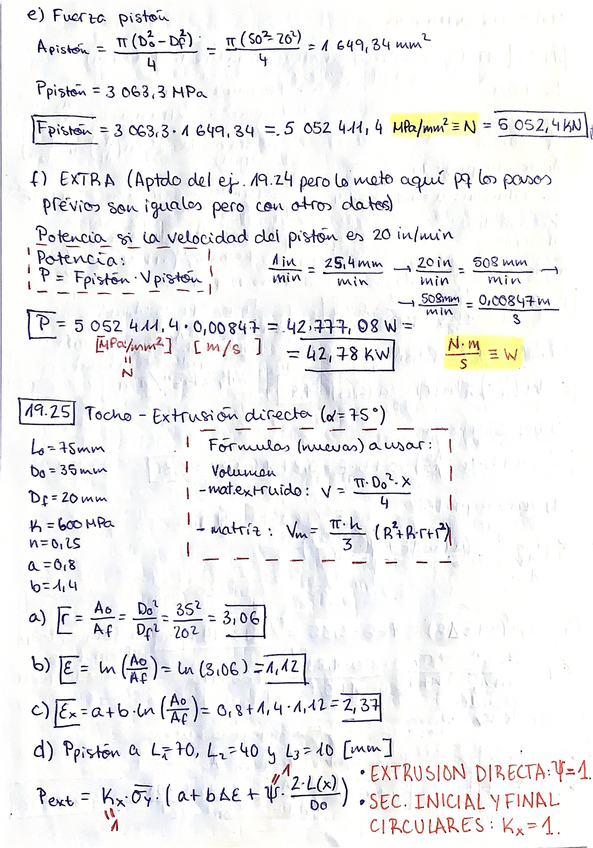 e) Fuerza pistón
Apistón = π(D₀²-Df²)/4 = π(50²-20²)/4 = 1 649,34 mm²
Ppistón = 3 063,3 MPa
Fpistón = 3 063,3 · 1 649,34 = 5 052 411,4 MPa/mm² ≡ N = 5 052,4 KN
f) EXTRA (Aptdo del ej. 19.24 pero lo meto aquí pq los pasos
prévios son iguales pero con otros datos)
Potencia si la velocidad del pistón es 20 in/min
Potencia:
P = Fpistón · Vpistón
1 in/min = 25,4 mm/min → 20 in/min = 508 mm/min →
→ 508 mm/min = 0,00847 m/s
P = 5 052 411,4 · 0,00847 = 42 777,08 W =
[MPa/mm²] [m/s]
"
N
= 42,78 KW
N·m/s ≡ W
19.25 Tocho - Extrusión directa (α = 75°)
L₀ = 75mm
D₀ = 35mm
Df = 20mm
K = 600 MPa
n = 0,25
a = 0,8
b = 1,4
Fórmulas (nuevas) a usar:
Volumen
- mat.extruido: V = π·D₀²·x/4
- matriz: Vm = π·h/3 (R²+R·r+r²)
a) r = A₀/Af = D₀²/Df² = 35²/202 = 3,06
b) ε = ln (A₀/Af) = ln (3,06) = 1,12
c) εx = a+b·ln (A₀/Af) = 0,8 + 1,4 · 1,12 = 2,37
d) Ppistón a L₁=70, L₂=40 y L₃=10 [mm]
Pext = Kx · σ̄y · (a + bΔε + Ψ · 2·L(x)/D₀)
" 1
" 1
• EXTRUSION DIRECTA: Ψ=1.
• SEC. INICIAL Y FINAL
CIRCULARES: Kx = 1.